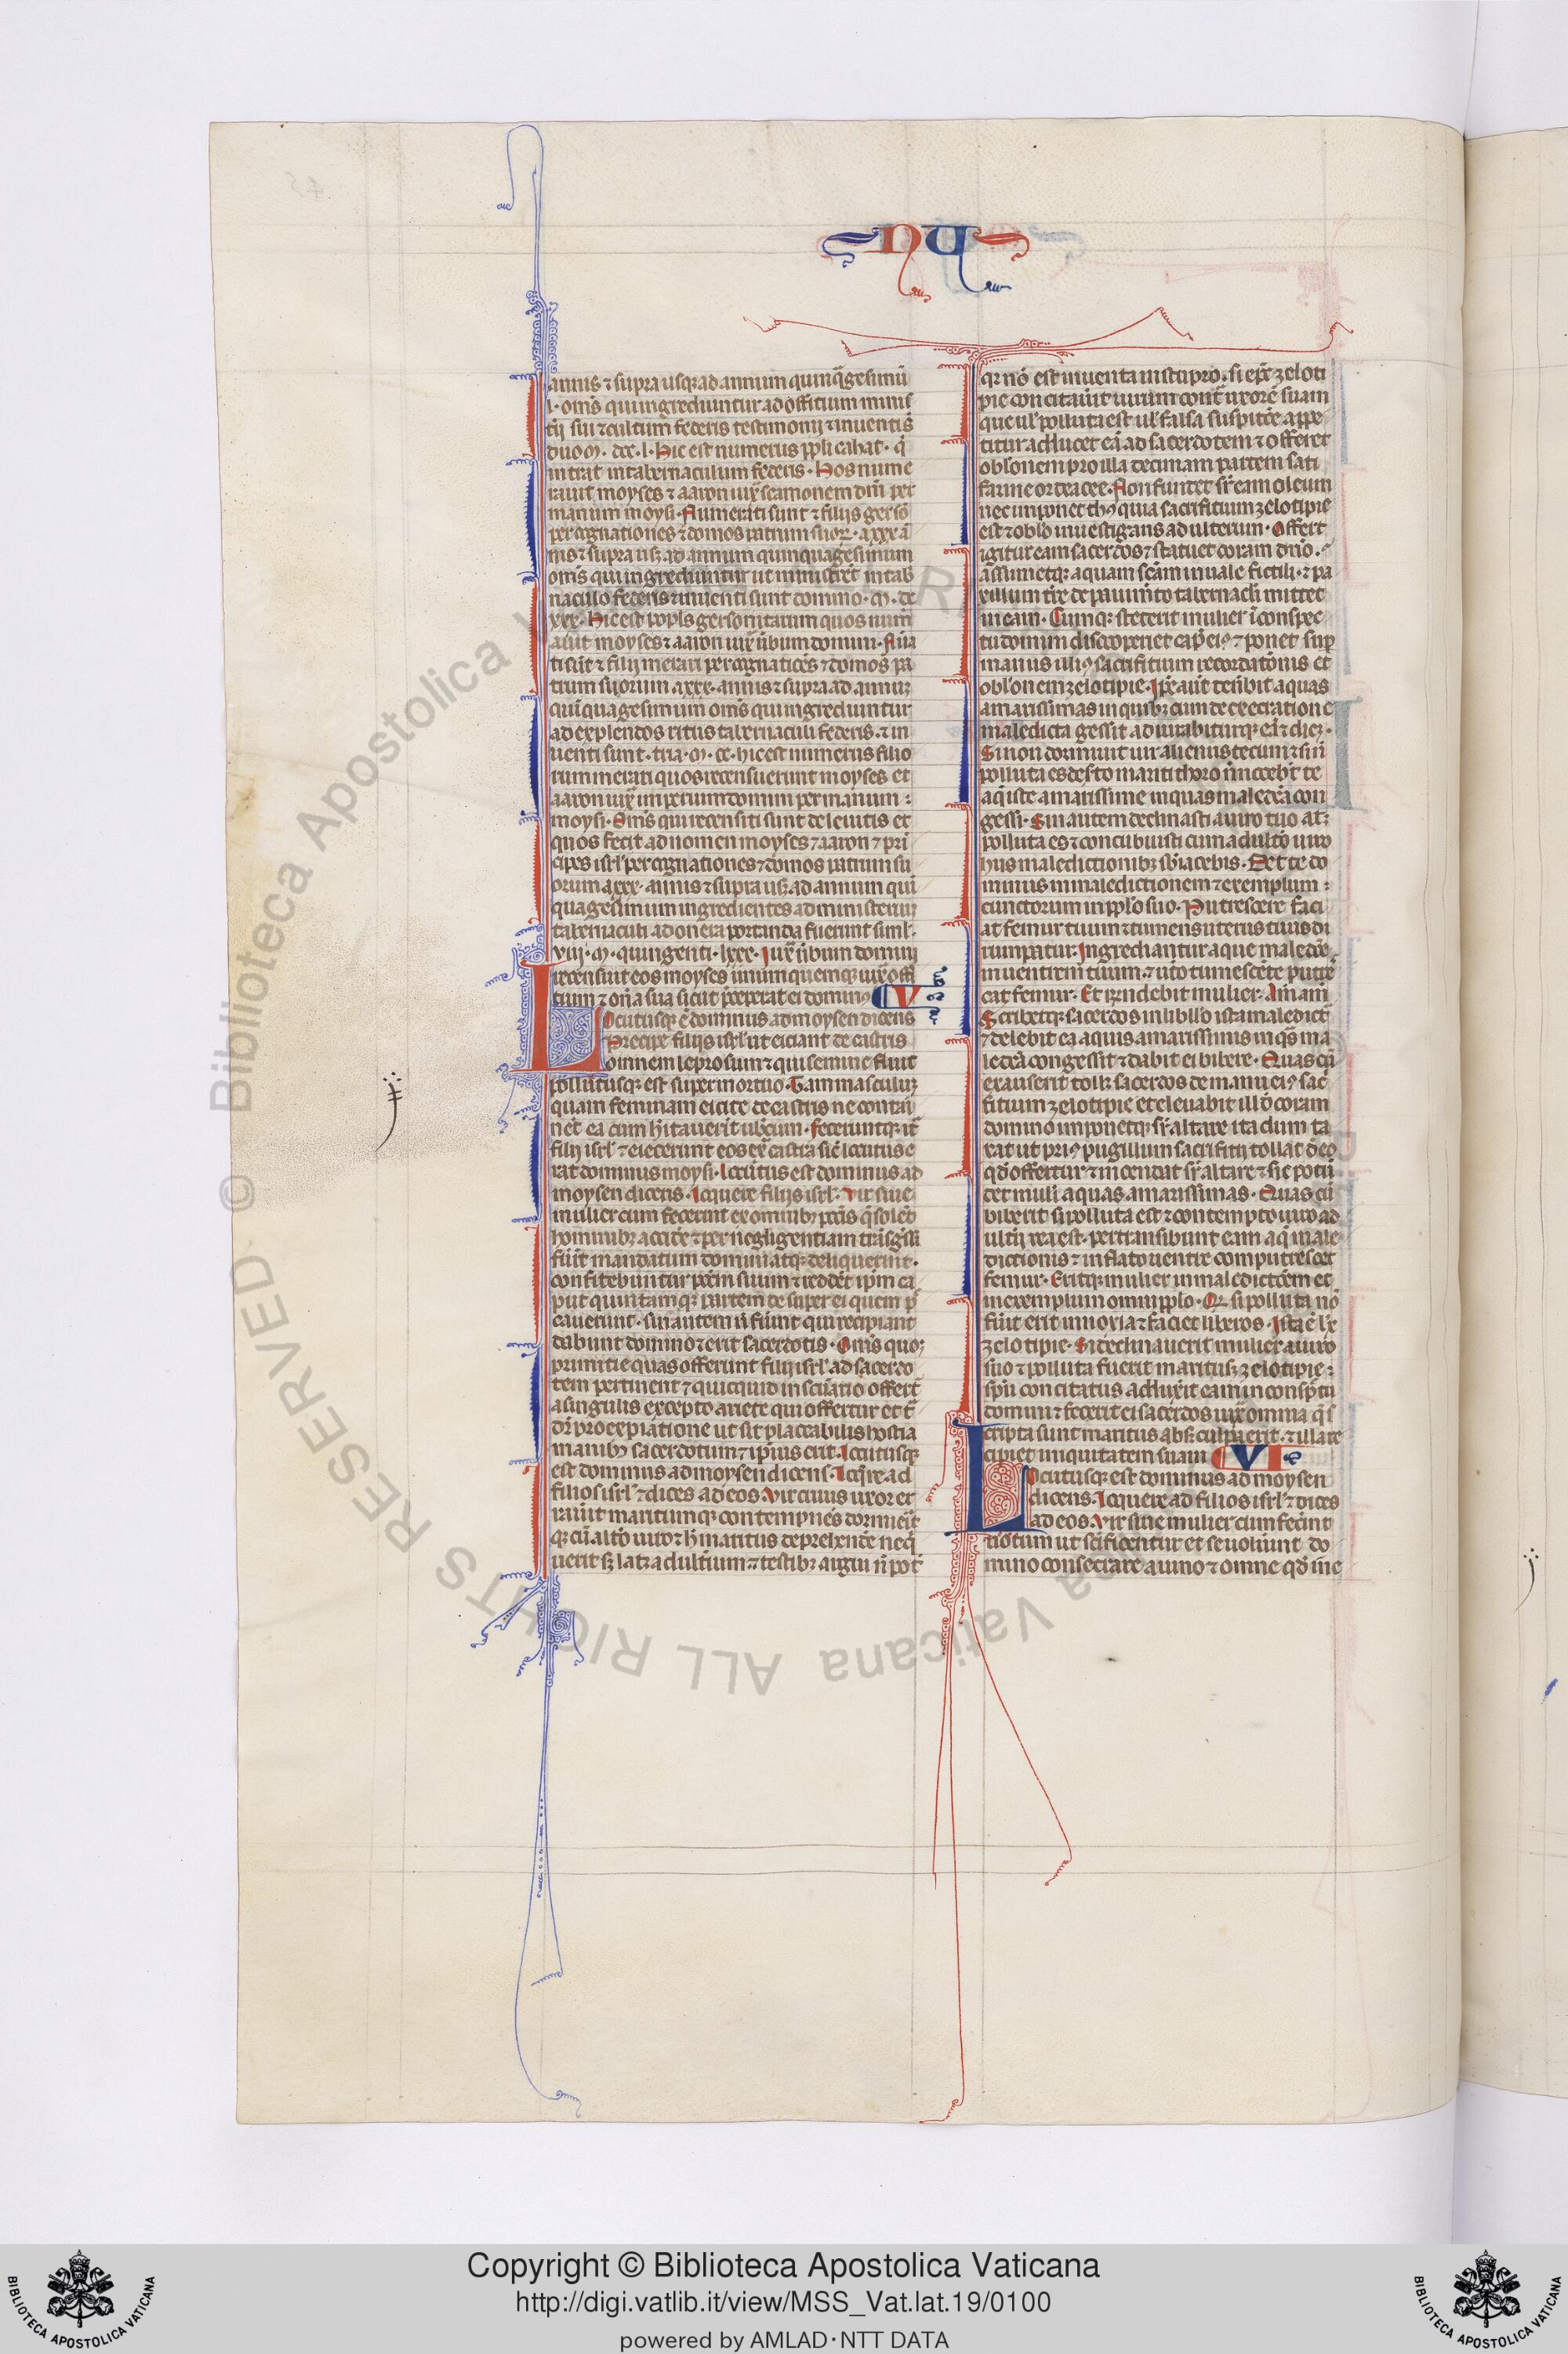 NU
annis ⁊ supra usq; ad annum quinq̃gesimũ
l. om̃s qui ingrediuntur ad offitium minis
tij sui ⁊ cultum federis testimonij ⁊ inuenti s̃
duo .M. dcc. l. Hic est numerus ppl̃i cahat. q̃
intrat in tabernaculum federis. Hos nume
rauit moyses ⁊ aaron iux̃ sermonem dñi per
manum moysi. Numerati sunt ⁊ filij gersõ
per cognationes ⁊ domos patrum suoꝝ. a xxx ã
nis ⁊ supra usq; ad annum quinquagesimum
om̃s qui ingrediuntur ut ministrẽt in tab
naculo federis ⁊ inuenti sunt domino .M. dc
xxx. Hic est popl̃s gersonitarum quos num̃
auit moyses ⁊ aaron iux̃ ũbum domini. Nũa
ti sũt ⁊ filij merari per cognatiões ⁊ domos pa
trum suorum a xxx. annis ⁊ supra ad annũ
quĩquagesimum om̃s qui ingrediuntur
ad explendos ritus tabernaculi federis. ⁊ in
uenti sunt. tria .M. cc. hic est numerus filio
rum merari quos recensuerunt moyses et
aaron iux̃ imperium domini per manum
moysi. Om̃s qui recensiti sunt de leuitis et
quos fecit ad nomen moyses ⁊ aaron ⁊ pri
cipes isrl̃ per cognationes ⁊ domos patrum su
orum a xxx. annis ⁊ supra usq; ad annum qui
quagesimum ingredientes ad ministeriũ
tabernaculi ad onera portanda fuerunt siml̃.
viij. M. quingenti. lxxx. Iux̃ ũbum domini
recensuit eos moyses unum quemq; iux̃ offi
tium ⁊ oñia sua sicut p̃ceperat ei dominꝰ V
Locutusq; ẽ dominus ad moysen dicens
Precipe filijs isrl̃ ut eiciant de castris
omnem leprosum ⁊ qui semine fluit
pollutusq; est super mortuo. Tam masculũ
quam feminam eicite de castris ne contaĩ
nẽt ea cum h̃itauerit ub̃cum. feceruntq; ita
filij isrl̃ ⁊ eiecerunt eos ex̃ castra sic̃ locutus e
rat dominus moysi. locutus est dominus ad
moysen dicens. loquere filijs isrl̃. Vir siue
mulier cum fecerint ex omnibꝫ pcc̃is q̃ solẽt
hominibꝫ accidẽ ⁊ per negligentiam trãsg̃ssi
fũint mandatum domini atq; deliquerint.
confitebuntur pccm̃ suum ⁊ reddẽt ip̃m ca
put quintamq; partem desuper ei quem p̃
cauerunt. sin autem ñ fũint qui recipiant
dabunt domino ⁊ erit sacerdotis. Om̃s quoꝫ
primitie quas offerunt filij isrl̃ ad sacerdo
tem pertinent ⁊ quicquid in sc̃uatio offert̃
a singulis excepto ariete qui offertur et t̃
dr̃ pro expiatione ut sit placeabilis hostia
manibꝫ sacerdotum ⁊ ipsius erit. Locutusq;
est dominus ad moysen dicens. loq̃re ad
filios isrl̃ ⁊ dices ad eos. Vir cuius uxor er
rauit maritumq; contempnẽs dormieĩt
q; cũ altõ uiro ⁊ h̃ maritus deprehendẽ neq̃
uerit sꝫ lat̃ adultium ⁊ testibꝫ argui ñ pot̃
qꝛ nõ est inuenta in stupro. si sp̃c zeloti
pie concitauit uirum cont̃ uxorẽ suam
que ul̃ polluta est ul̃ falsa suspitiõe appe
titur adducet eã ad sacerdotem ⁊ offeret
obl̃onem pro illa decimam partem sati
farine ordeacee. Non fundet sr̃ eam oleum
nec imponet thꝰ quia sacrifitium zelotipie
est ⁊ oblõ inuestigans adulterium. Offert
igitur eam sacerdos ⁊ statuet coram dño.
assumetq; aquam sc̃am in uase fictili. ⁊ pa
xillum tr̃e de pauim̃to tabernacl̃i mittet
in eam. Cumq; steterit mulier ĩ conspec
tu domini discooperiet cap̃ eiꝰ ⁊ ponet sup̃
manus illiꝰ sacrifitium recordatõnis et
obl̃onem zelotipie. Ip̃e aũt tenẽbit aquas
amarissimas in quibꝫ cum execratione
maledicta gessit adiurabiturq; eã ⁊ dicꝫ.
Si non dormiuit uir alienus tecum ⁊ si ñ
polluta es deserto mariti thoro ñ nocebt̃ te
aq̃ iste amarissime in quas maledc̃a con
gessi. Sin autem declinasti a uiro tuo atꝫ
polluta es ⁊ concubuisti cum adultõ uiro
hiis maledictionibꝫ sb̃iacebis. Det te do
minus in maledictionem ⁊ exemplum
cunctorum in ppl̃o suo. Putrescere faci
at femur tuum ⁊ tumens uterus tuus di
rumpatur. Ingrediantur aque maledc̃e
in uentrem tuum ⁊ ut̃o tumescẽte putre
cat femur. Et respondebit mulier. Am am̃
Scribetq; sacerdos in libillo ista maledict̃
⁊ delebit ea aquis amarissimis in q̃s ma
ledc̃a congessit ⁊ dabit ei bibere. Quas cũ
exauserit tollꝫ sacerdos de manu eiꝰ sac̃
fitium zelotipie et eleuabit illõ coram
domino imponetq; sr̃ altare ita dum ta
xat ut priꝰ pugillum sacrifitij tollat de eo
qd̃ offertur ⁊ incendat sr̃ altare ⁊ sic potũ
det muli aquas amarissimas. Quas cũ
biberit si polluta est ⁊ contempto uiro ad
ultij rea est. pertransibunt eam aq̃ male
dictionis ⁊ inflato uentre computrescet
femur. Eritq; mulier in maledictõem et
in exemplum omni ppl̃o. Qꝛ si polluta nõ
fũit erit innoxia ⁊ faciet liberos. Ista ẽ lex
zelotipie. Si declinauerit mulier a uiro
suo ⁊ polluta fuerit maritusꝫ zelotipie
sp̃u concitatus adduxit eam in consp̃tu
domini ⁊ fecerit ei sacerdos iux̃ omnia q̃ s
cripta sunt maritus absꝫ culpa erit. ⁊ illa re
cipiet iniquitatem suam VI
Locutusq; est dominus ad moysen
dicens. loquere ad filios isrl̃ ⁊ dices
ad eos. Vir siue mulier cum fec̃int
uotum ut sc̃ificentur et se uoluint do
mino consecrare a uino ⁊ omne qd̃ ine
© Biblioteca Apostolica Vaticana ALL RIGHTS RESERVED
Copyright © Biblioteca Apostolica Vaticana
http://digi.vatlib.it/view/MSS_Vat.lat.19/0100
powered by AMLAD·NTT DATA
BIBLIOTECA APOSTOLICA VATICANA
BIBLIOTECA APOSTOLICA VATICANA